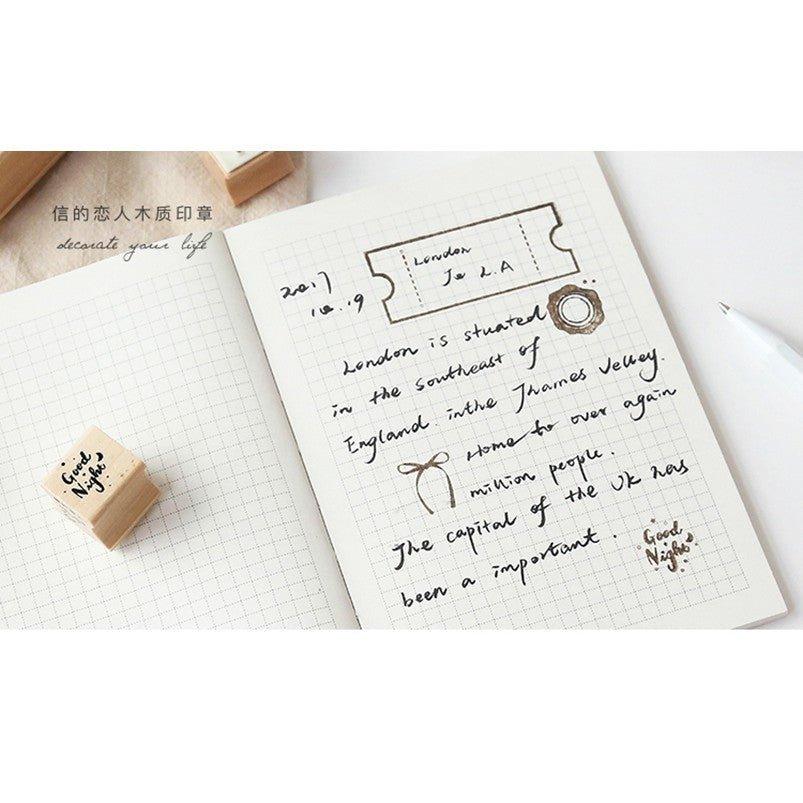 信的恋人木质印章
decorate your life
London
To L.A
2017
10.19
London is stuated
in the southeast of
England. inthe Thames Velley.
Home to over again
million people.
The capital of the UK has
been a important.
Good
Night
Good
Night